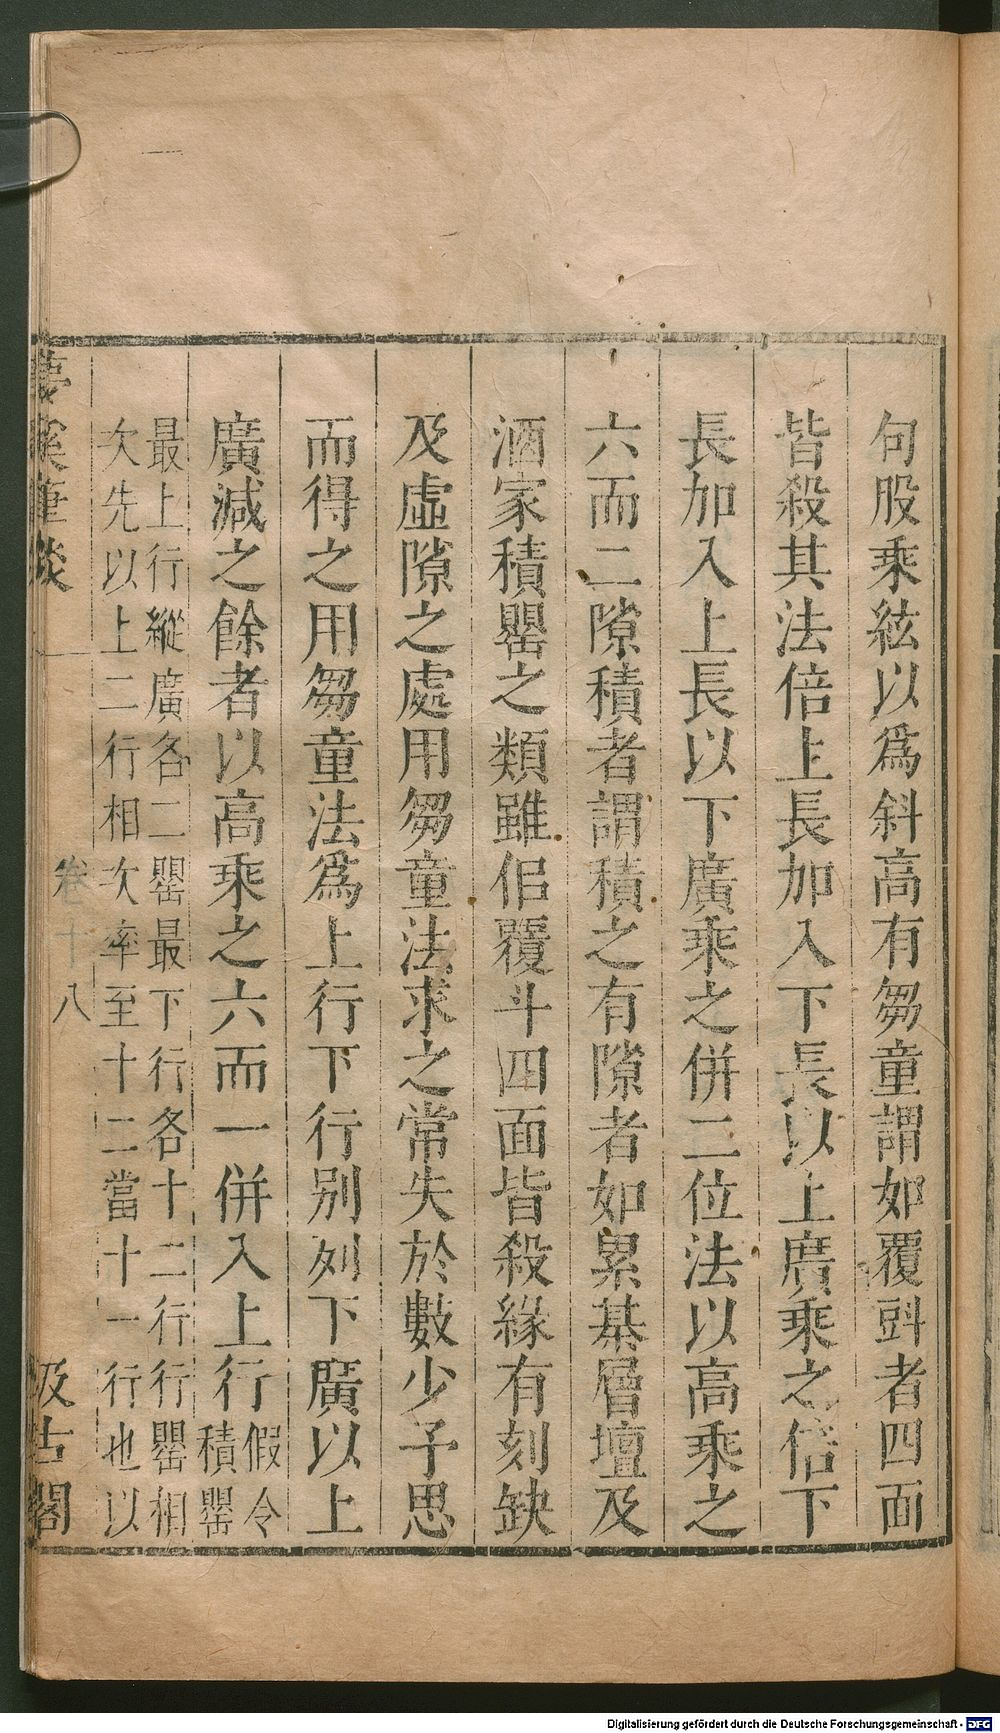 句股乘絃以爲斜高有芻童謂如覆㪷者四面
皆殺其法倍上長加入下長以上廣乘之倍下
長加入上長以下廣乘之併二位法以高乘之
六而二隙積者謂積之有隙者如累棊層壇及
酒家積罌之類雖佀覆斗四面皆殺緣有刻缺
及虛隙之處用芻童法求之常失於數少予思
而得之用芻童法爲上行下行别列下廣以上
廣減之餘者以高乘之六而一併入上行假令
積罌
最上行縱廣各二罌最下行各十二行行罌相
次先以上二行相次率至十二當十一行也以
夢溪筆談
卷十八
汲古閣
Digitalisierung gefördert durch die Deutsche Forschungsgemeinschaft - DFG